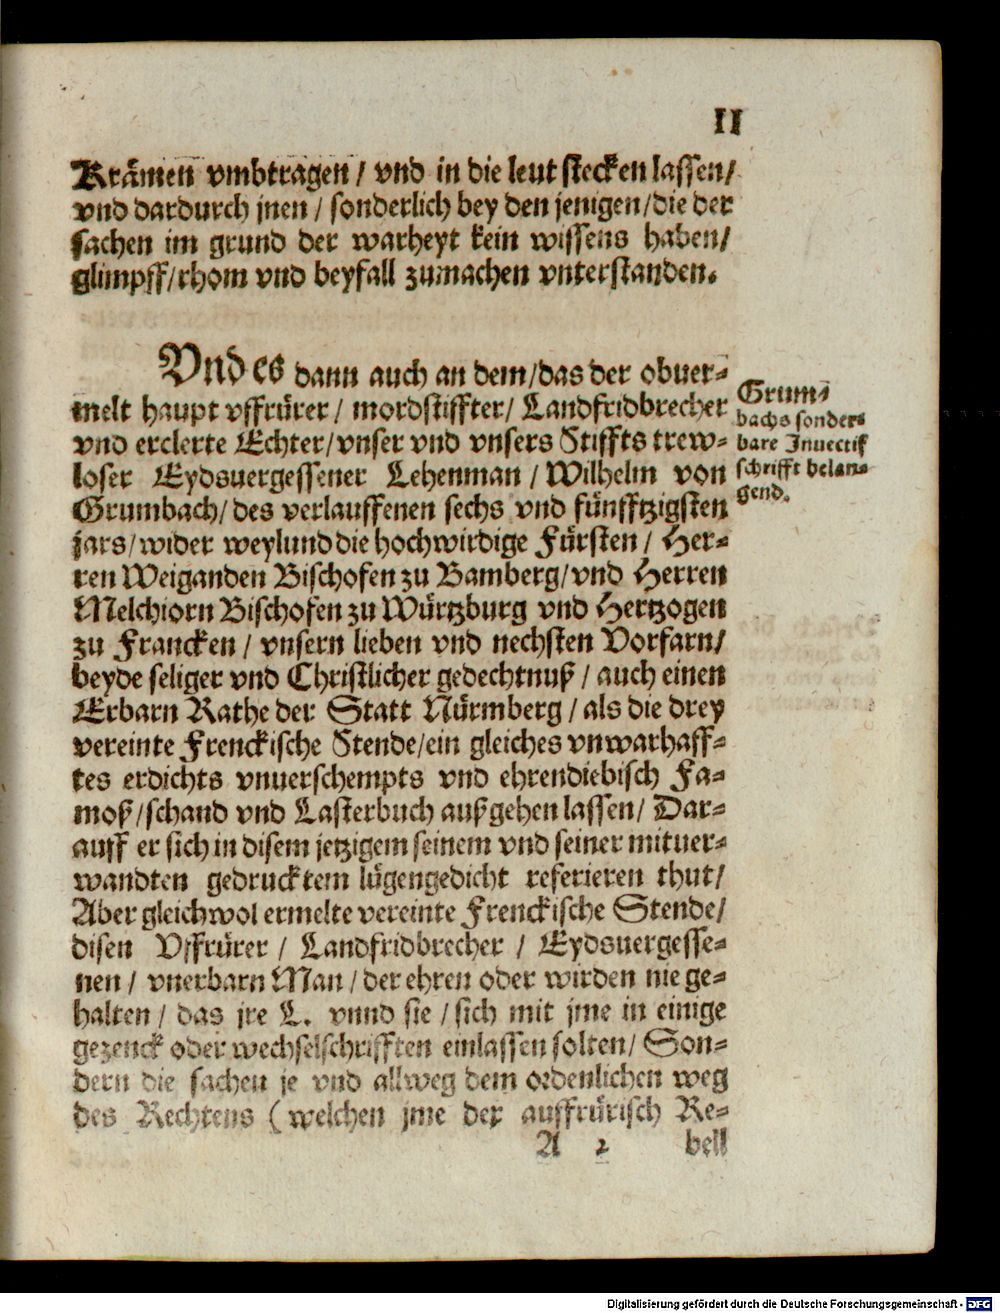 II
Krämen vmbtragen / vnd in die leut stecken lassen/
vnd dardurch jnen / sonderlich bey den jenigen/die der
sachen im grund der warheyt kein wissens haben/
glimpff/rhom vnd beyfall zumachen vnterstanden.
Vnd es dann auch an dem/das der obuer-
melt haupt vffrürer / mordstiffter/ Landfridbrecher
vnd erclerte Echter/vnser vnd vnsers Stiffts trew-
loser Eydsuergessener Lehenman / Wilhelm von
Grumbach/ des verlauffenen sechs vnd fünfftzigsten
jars/wider weylund die hochwirdige Fürsten / Her-
ren Weiganden Bischofen zu Bamberg/vnd Herren
Melchiorn Bischofen zu Würtzburg vnd Hertzogen
zu Francken / vnsern lieben vnd nechsten Vorfarn/
beyde seliger vnd Christlicher gedechtnuß / auch einen
Erbarn Rathe der Statt Nürmberg / als die drey
vereinte Frenckische Stende/ein gleiches vnwarhaff-
tes erdichts vnuerschempts vnd ehrendiebisch Fa-
moß/schand vnd Lasterbuch außgehen lassen/ Dar-
auff er sich in disem jetzigem seinem vnd seiner mituer-
wandten gedrucktem lügengedicht referieren thut/
Aber gleichwol ermelte vereinte Frenckische Stende/
disen Vffrürer / Landfridbrecher / Eydsuergesse-
nen / vnerbarn Man / der ehren oder wirden nie ge-
halten / das jre L. vnnd sie / sich mit jme in einige
gezenck oder wechselschrifften einlassen solten/ Son-
dern die sachen je vnd allweg dem ordenlichen weg
des Rechtens (welchen jme der auffrürisch Re-
A 2 bell
Grum-
bachs sonder-
bare Inuectif
schrifft belan-
gend.
Digitalisierung gefördert durch die Deutsche Forschungsgemeinschaft - DFG